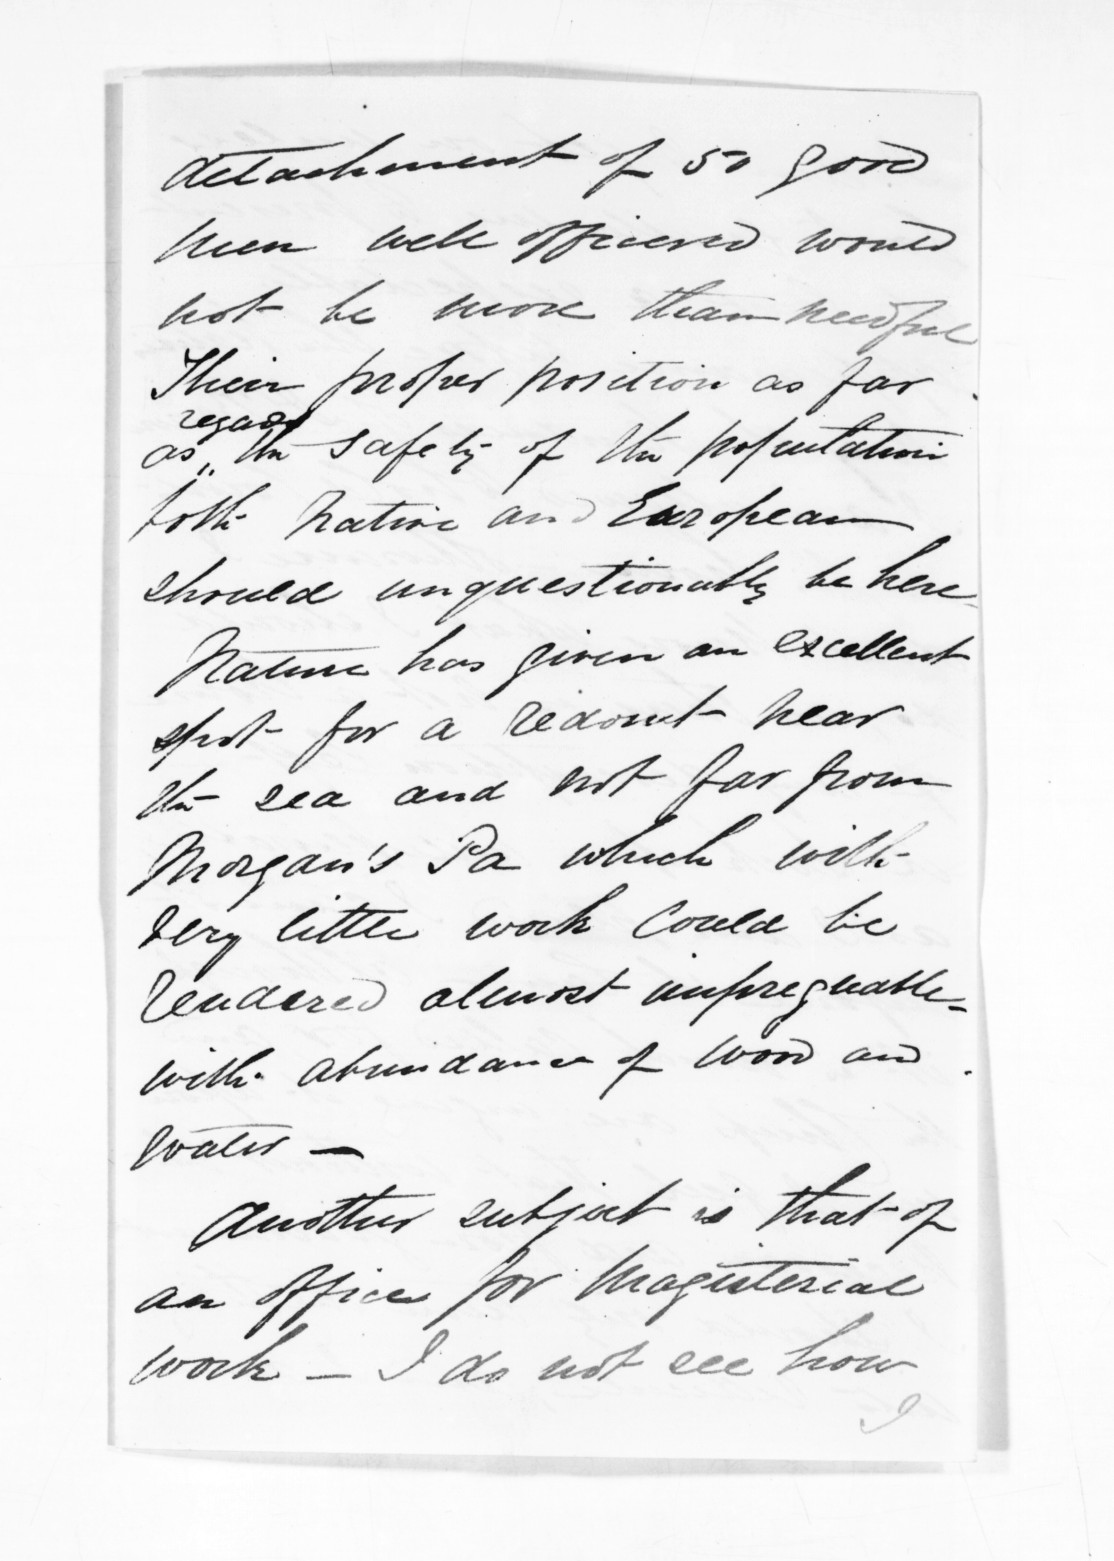 detachment of 50 good
men well officered would
not be more than needful
Their proper position as far
regards
as " the safety of the population
both Native and European
should unquestionably be here
Nature has given an excellent
spot for a redout near
the sea and not far from
Morgan's Pa which with
very little work could be
rendered almost impregnable -
with abundance of wood and
water —
Another subject is that of
an office for Magisterial
work — I do not see how
I